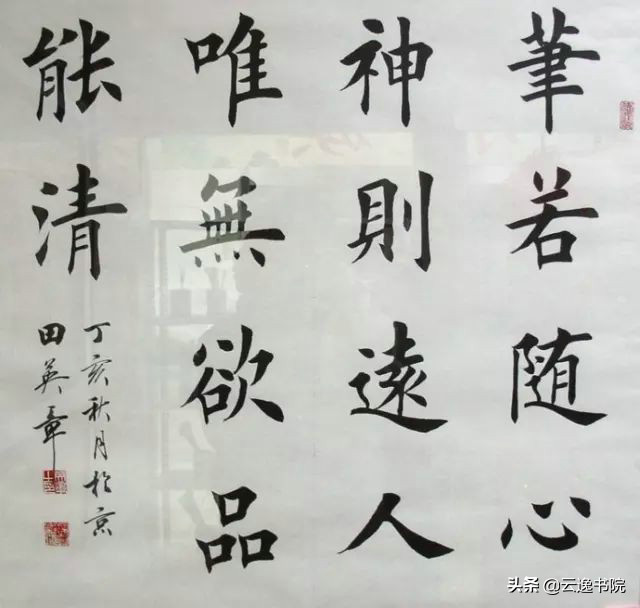 筆若随心
神則遠人
唯無欲品
能清
丁亥秋月於京
田英章
头条 @云逸书院